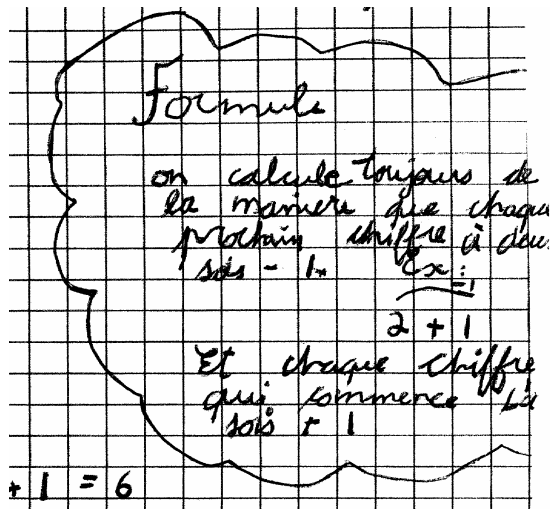 Formule
on calcule toujours de
la maniere que chaque
prochain chiffre à deux
sois - 1. Ex:
-1
2 + 1
Et chaque chiffre
qui commence là
sois + 1
+ 1 = 6